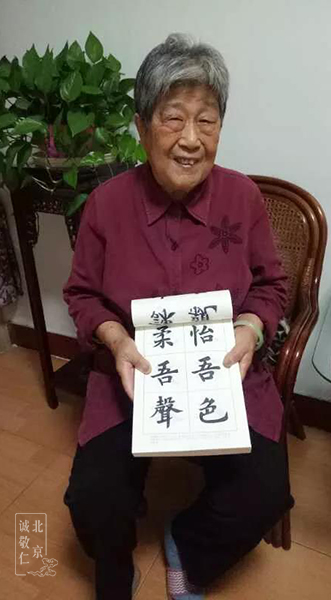 怡吾色
柔吾聲
北京
诚敬仁